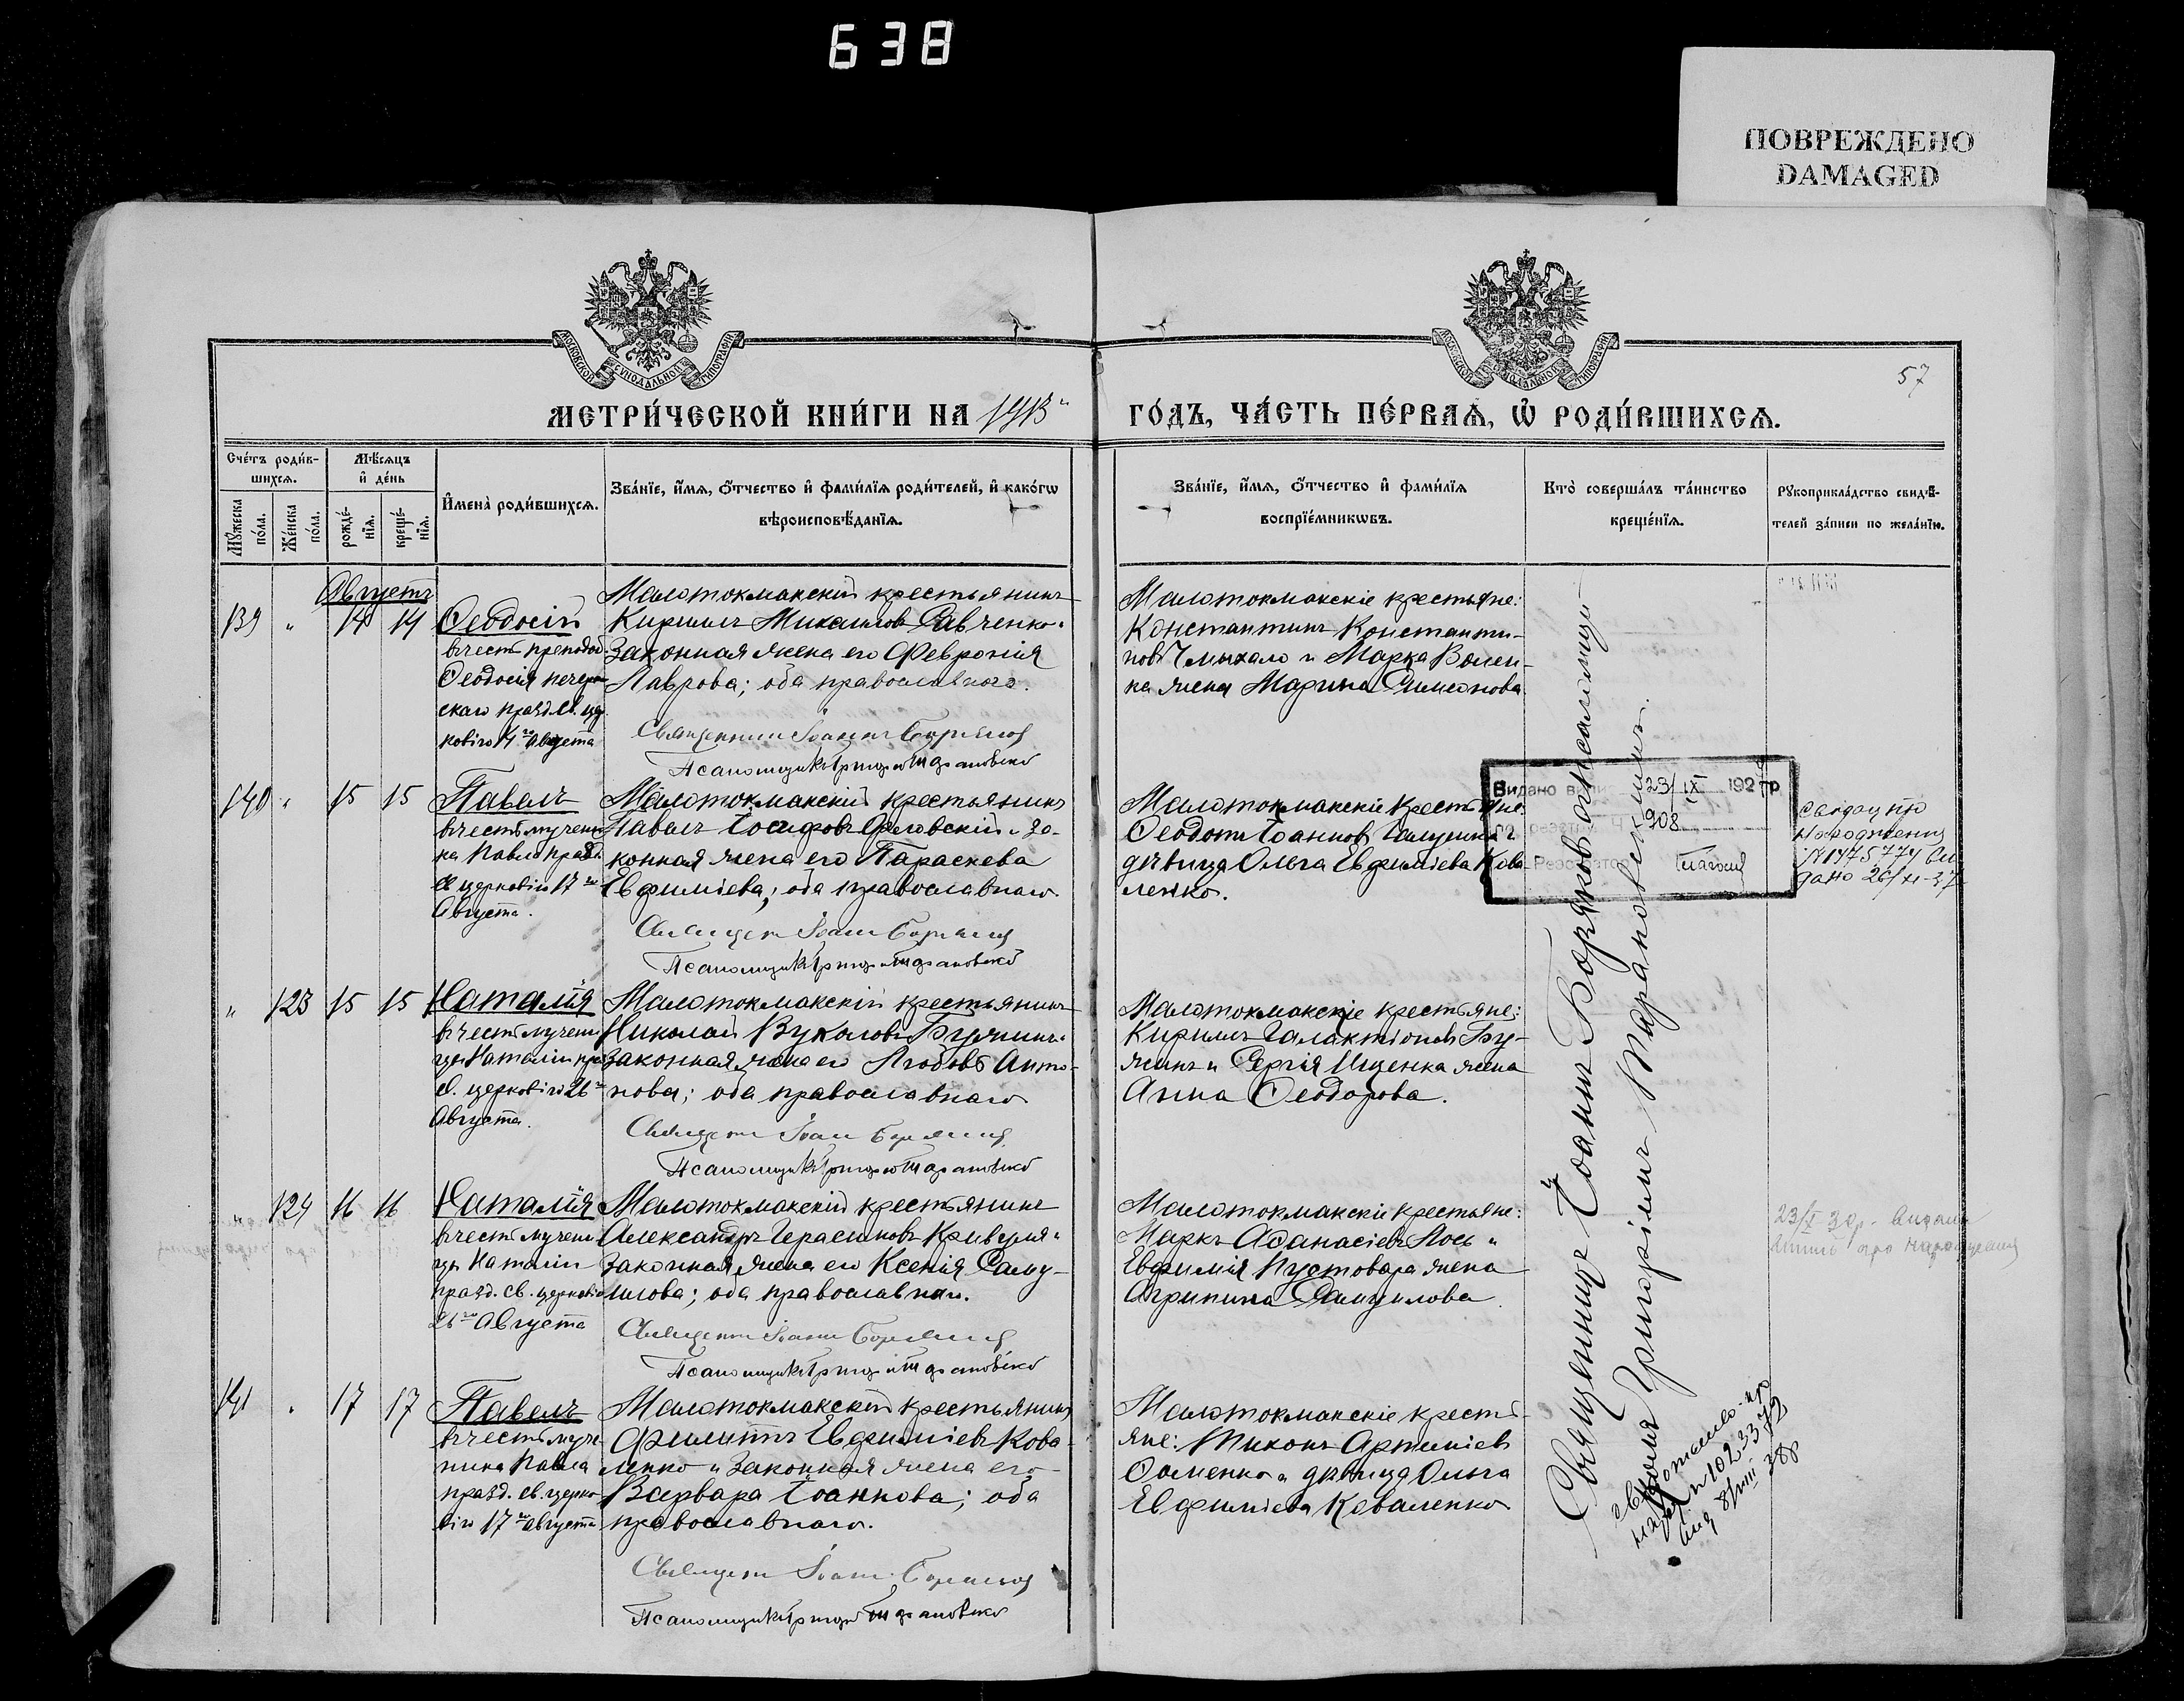 638
ПОВРЕЖДЕНО
DAMAGED
МОСКОВСКОЙ СѴНОДАЛЬНОЙ ТИПОГРАФІИ
МОСКОВСКОЙ СѴНОДАЛЬНОЙ ТИПОГРАФІИ
57
МЕТРИ́ЧЕСКОЙ КНИ́ГИ НА 1913
ГО́ДЪ, ЧА́СТЬ ПЕ́РВАѦ, Ѡ҆ РОДИ́ВШИХСѦ.
Сче́тъ роди́в-
шихсѧ.
Мѣ́сѧцъ
и҆ де́нь
Мꙋ́жеска
по́ла.
Же́нска
по́ла.
рожде́-
нїѧ.
креще́-
нїѧ.
И҆мена̀ роди́вшихсѧ.
Зва́нїе, и҆́мѧ, ѻ҆́тчество и҆ фами́лїѧ роди́телей, и҆ како́гѡ
вѣроисповѣ́данїѧ.
Зва́нїе, и҆́мѧ, ѻ҆́тчество и҆ фами́лїѧ
воспрїе́мникѡвъ.
Кто̀ соверша́лъ та́инство
креще́нїѧ.
Рꙋкоприкла́дство свидѣ́-
телей за́писи по жела́нїю.
Августъ
139 " 14 14
Ѳеодосій
въ честь преподоб.
Ѳеодосія печер-
скаго празд. св. цер-
ковію 14го августа
Малотокмакскій крестьянинъ
Кириллъ Михаиловъ Савченко и
законная жена его Февронія
Лаврова; оба православнаго.
Священникъ Іоаннъ Боряковъ
Псаломщикъ Григорій Тарановскій
Малотокмакскіе крестьяне:
Константинъ Константи-
новъ Чмыхало и Марка Волен-
ка жена Марина Симеонова
140 " 15 15
Павелъ
въ честь мучени-
ка Павла празд.
св. церковію 17го
Августа.
Малотокмакскій крестьянинъ
Павелъ Іосифовъ Орловскій и за-
конная жена его Параскева
Евфиміева; оба православнаго.
Священникъ Іоаннъ Боряковъ
Псаломщикъ Григорій Тарановскій
Малотокмакскіе крестьяне:
Ѳеодотъ Іоанновъ Галушка и
дѣвица Ольга Евфиміева Кова-
ленко.
Видано 23/IX 1927 р
908
свидоцтво
народження
№1475774 ви
дано 26/XI-37
" 123 15 15
Наталія
въ честь мучени-
цы Наталіи праз.
св. церковію 26го
Августа.
Малотокмакскій крестьянинъ
Николай Вуколовъ Бужинъ и
законная жена его Любовь Анто-
нова; оба православнаго
Священникъ Іоаннъ Боряковъ
Псаломщикъ Григорій Тарановскій
Малотокмакскіе крестьяне:
Кириллъ Галактіоновъ Бу-
жинъ и Сергія Ищенка жена
Анна Ѳеодорова.
" 124 16 16
Наталія
въ честь мучени-
цы Наталіи
празд. св. церковію
26го Августа
Малотокмакскій крестьянинъ
Александръ Герасимовъ Кривуля и
законная жена его Ксенія Саму-
илова; оба православнаго.
Священникъ Іоаннъ Боряковъ
Псаломщикъ Григорій Тарановскій
Малотокмакскіе крестьяне:
Маркъ Аѳанасіевъ Лось и
Евфимія Пустовара жена
Агрипина Самуилова
141 " 17 17
Павелъ
въ честь муче-
ника Павла
празд. св. церко-
вію 17го августа
Малотокмакскій крестьянинъ
Филиппъ Евфиміевъ Кова-
ленко и законная жена его
Варвара Іоаннова; оба
православнаго.
Священникъ Іоаннъ Боряковъ
Псаломщикъ Григорій Тарановскій
Малотокмакскіе кресть-
яне: Тихонъ Артеміевъ
Соменко и дѣвица Ольга
Евфиміева Коваленко
Священникъ Іоаннъ Боряковъ съ псаломщи-
комъ Григоріемъ Тарановскимъ.
№ 1023372
8/VIII 38р